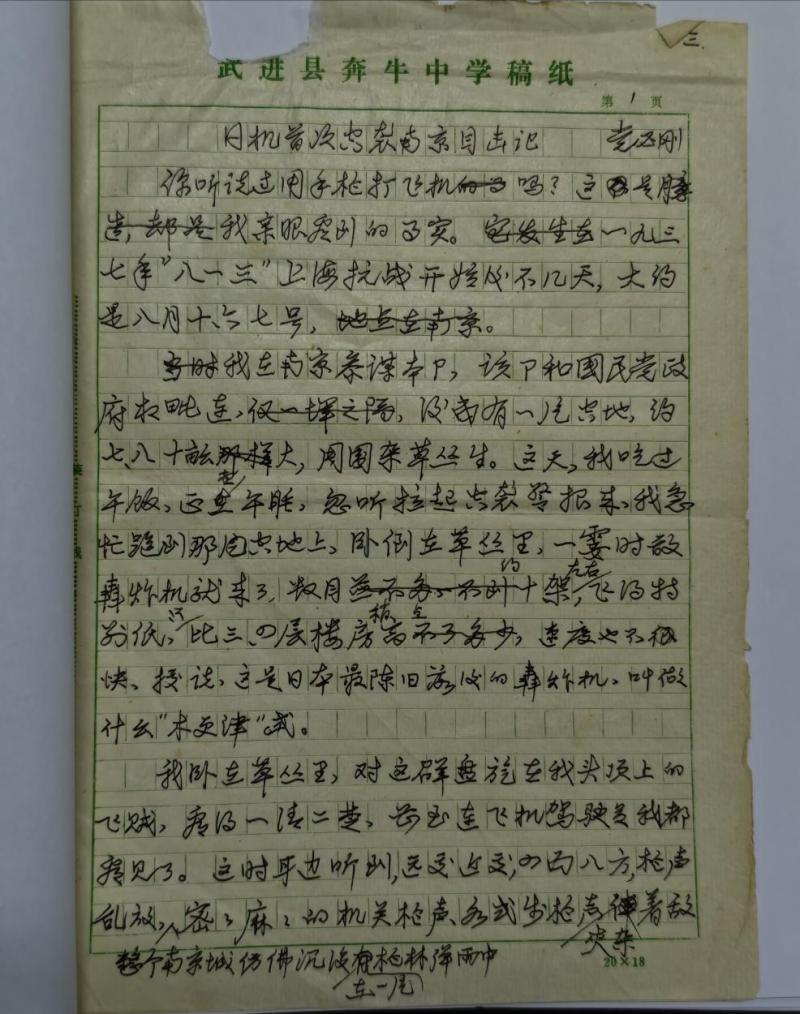 三.
武进县奔牛中学稿纸
第 1 页
日机首次空袭南京目击记
你听说过用手枪打飞机的事吗？这不是臆
造，却是我亲眼看到的事实。它发生在一九三
七年“八一三”上海抗战开始后不几天，大约
是八月十六七号，地点在南京。
当时我在南京参谋本部，该部和國民党政
府相毗连，仅一墙之隔，后面有一片空地，约
七、八十亩那样大，周围杂草丛生。这天，我吃过
午饭，正在午睡，忽听拉起空袭警报来，我急
忙跑到那片空地上，卧倒在草丛里，一霎时敌
约 左右
轰炸机就来了，数目并不多，不到十架，飞得特
只 稍 点
别低，比三、四层楼房高不了多少，速度也不很
快，据说，这是日本最陈旧落后的轰炸机，叫做
什么“木更津”式。
我卧在草丛里，对这群盘旋在我头顶上的
飞贼，看得一清二楚，甚至连飞机驾驶员我都
看见了。这时耳边听到，远处近处，四面八方，枪声
乱放，密密麻麻的机关枪声、各式步枪声 着敌
夹杂
整个南京城仿佛沉没 枪林弹雨中
在一片
20×18